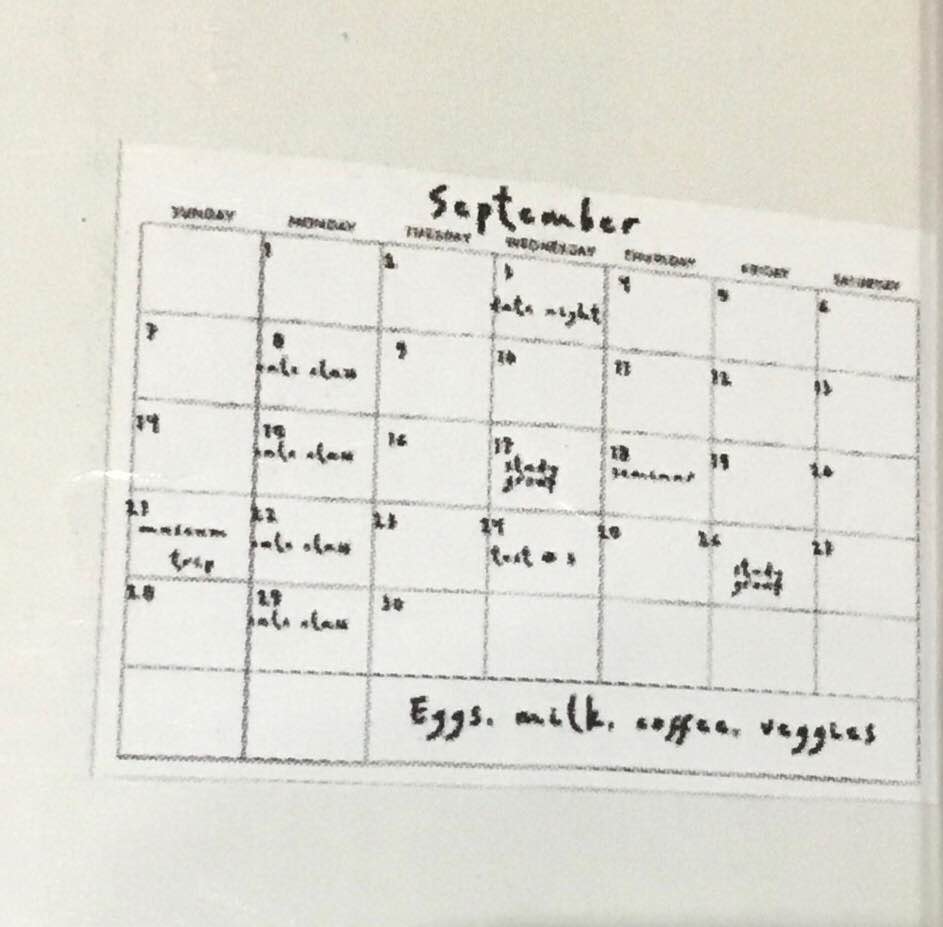 September
SUNDAY MONDAY TUESDAY WEDNESDAY THURSDAY FRIDAY SATURDAY
1 2 3 4 5 6
night
7 8 9 10 11 12 13
class
14 15 16 17 18 19 20
class study seminar
group
21 22 23 24 25 26 27
museum class test study
trip group
28 29 30
class
Eggs, milk, coffee, veggies